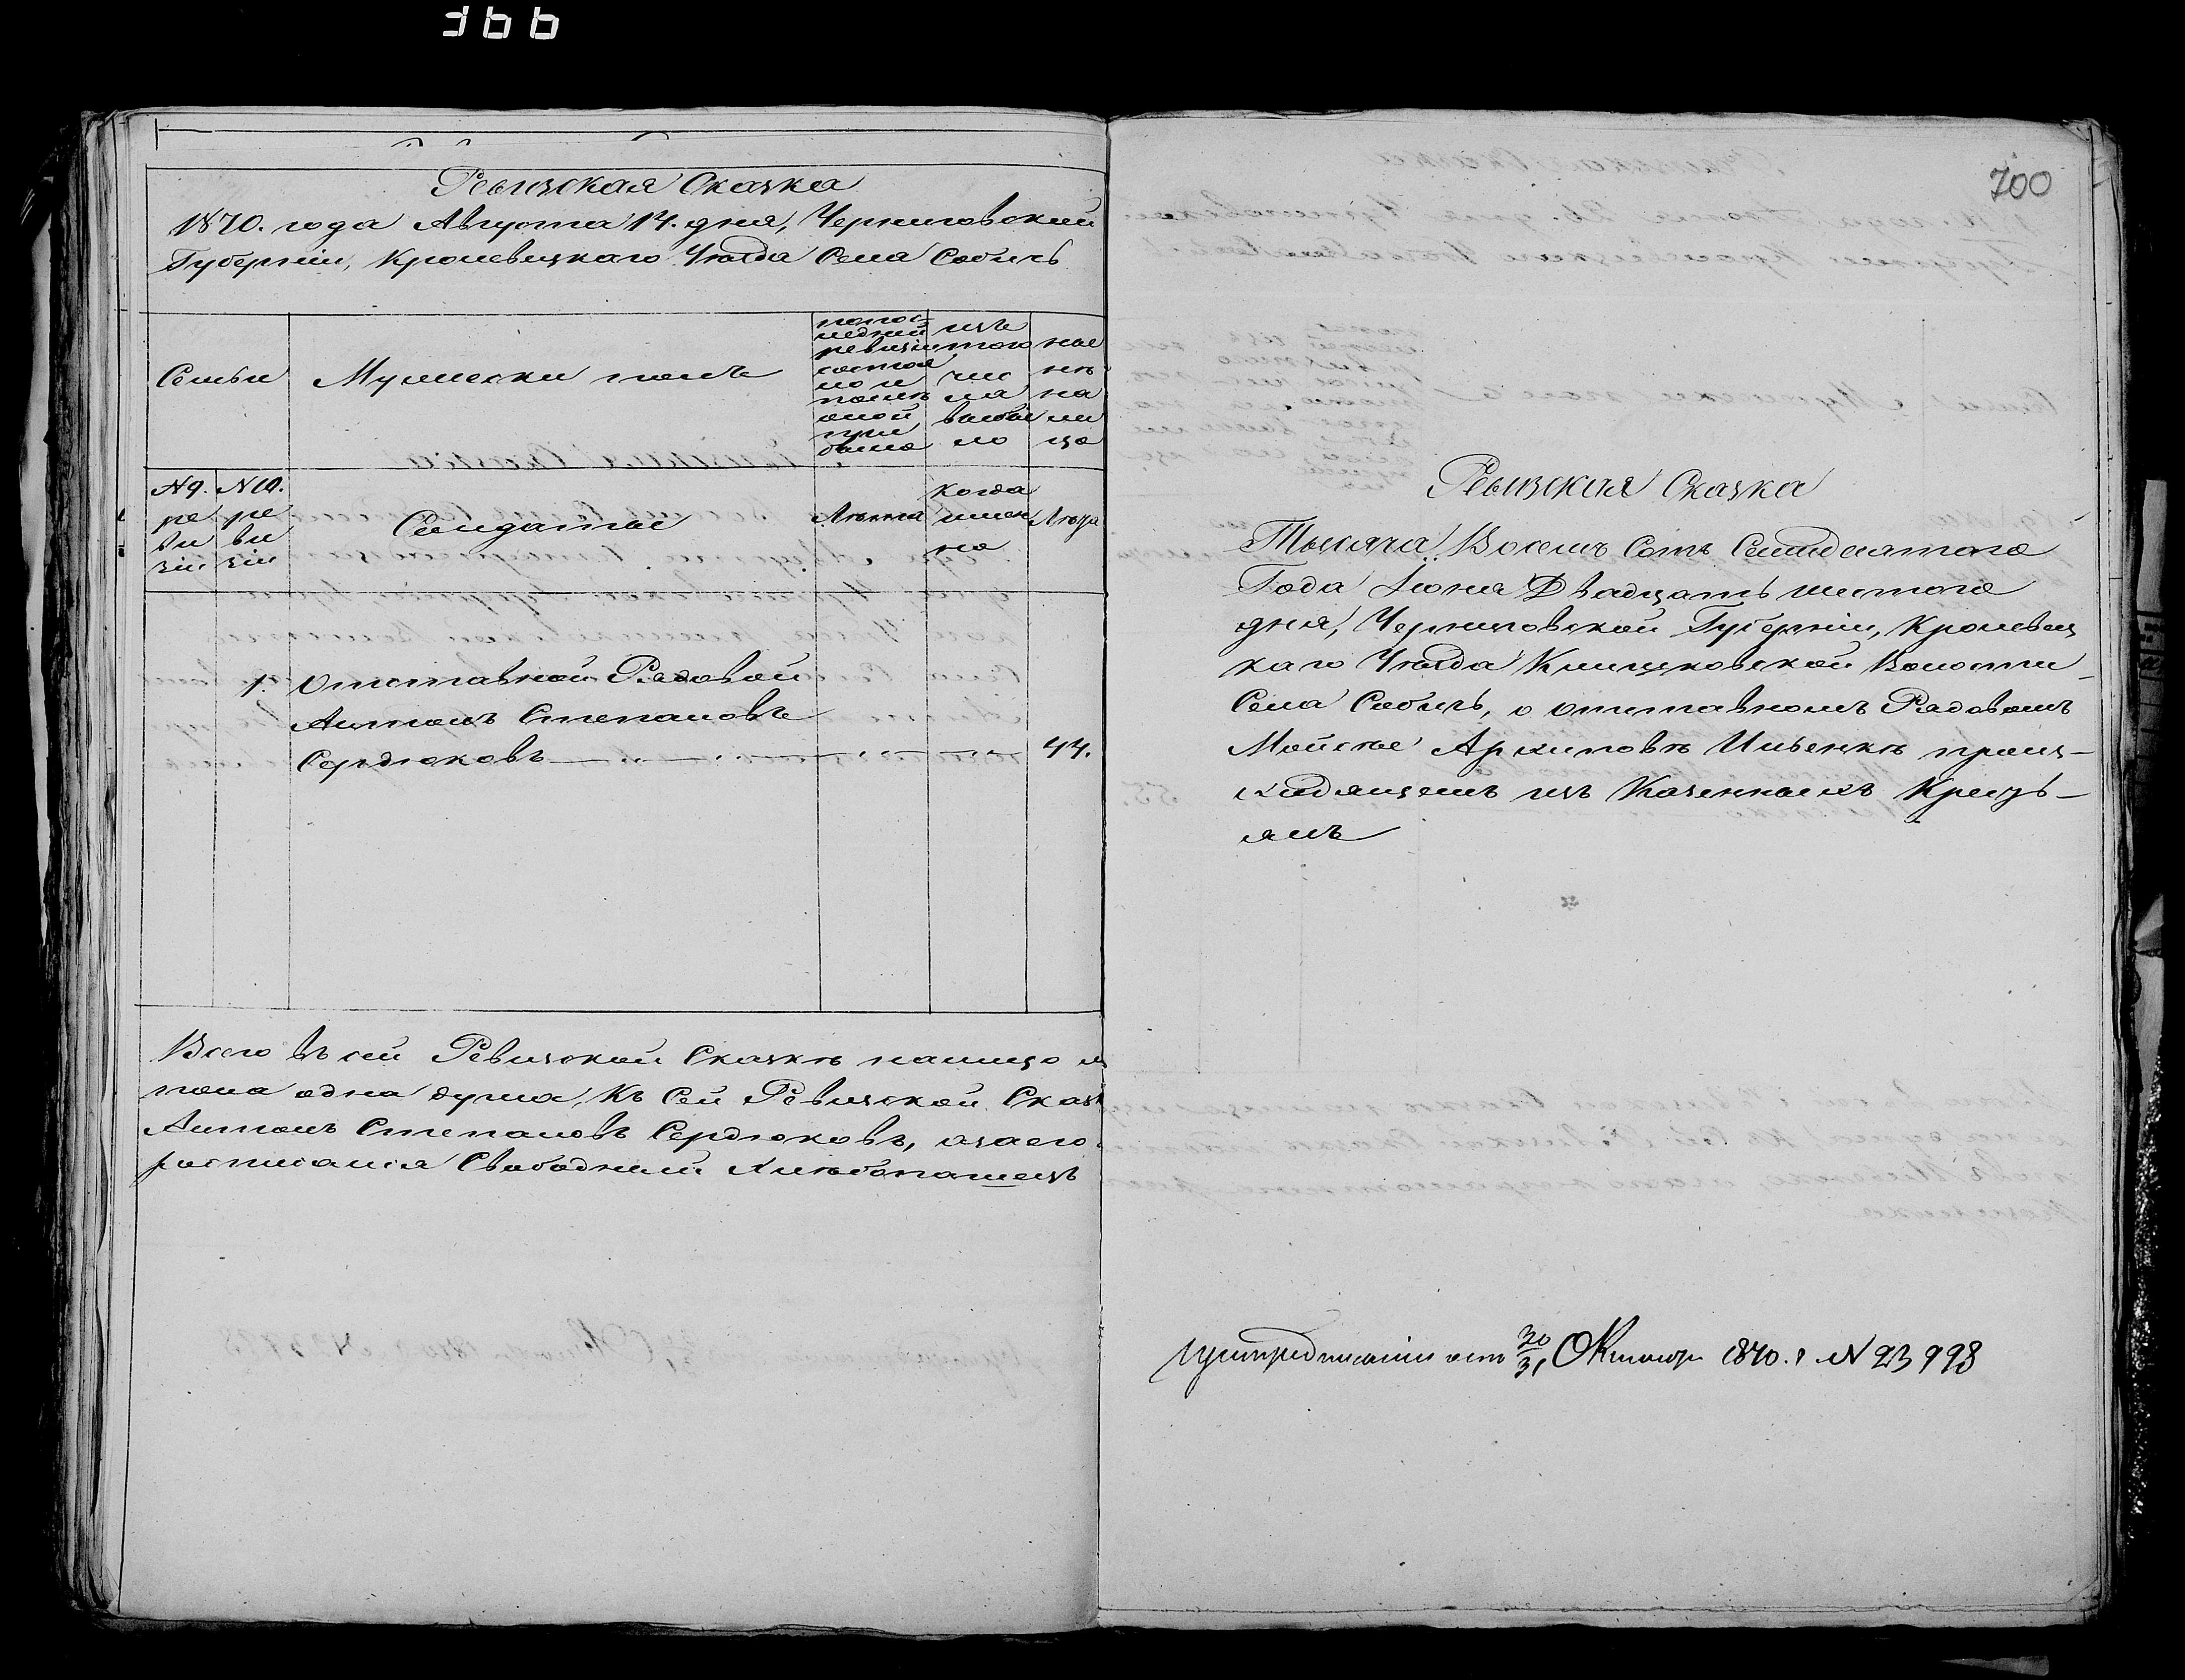 366
Ревизская Сказка
1870. года Августа 14. дня, Черниговский
Губернии, Кролевецкаго Уезда Села Собичь
Семьи
Мужески полъ
попос-
ледней
ревизии
состоя
ло и
после
оной
при
было
изъ
того
чис
ла
выбы
ло
ные
не
на
ли
цо
№ 9.
ре
ви
зіи
№ 10.
ре
ви
зіи
Солдатые
Лета
когда
имен
но
Лета
1.
Отставной Радовой
Антонъ Степановъ
Сердюковъ
44.
Всего въ сей Ревизской Сказкѣ налицо м
пола одна душа, Къ Сей Ревизской Сказк
Антонъ Степановъ Сердюковъ, азаего
росписался Свабодний Хлебопашецъ
700
Ревизская Сказка
Тысяча Восемъ Сотъ Семидесятого
Года Іюня Двадцать шестого
дня, Черниговской Губерніи, Кролевец
каго Уезда Клишковской Волости
Села Собичь, о отставномъ Радовомъ
Мойсее Архиповѣ Ильенкѣ проис-
ходящемъ изъ Казенныхъ Кресть-
янъ
предписании отъ 30/31 Октября 1870. г № 23998